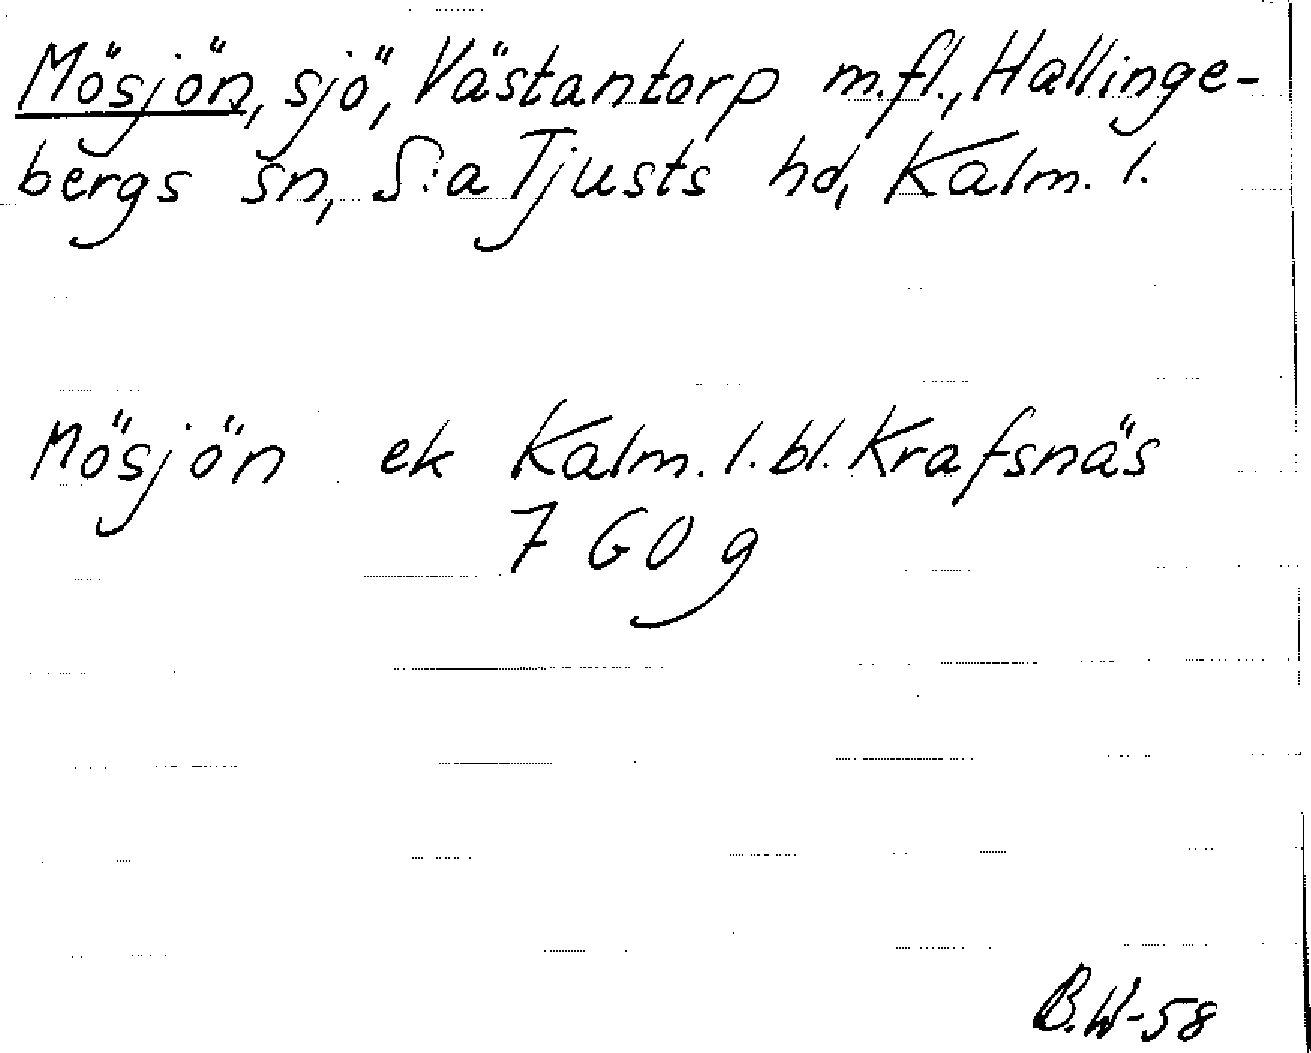 Mösjön, sjö, Västantorp m.fl., Hallinge-
bergs sn, S:a Tjusts hd, Kalm. l.
Mösjön ek Kalm. l. bl. Krafsnäs
7 GO g
B.W-58